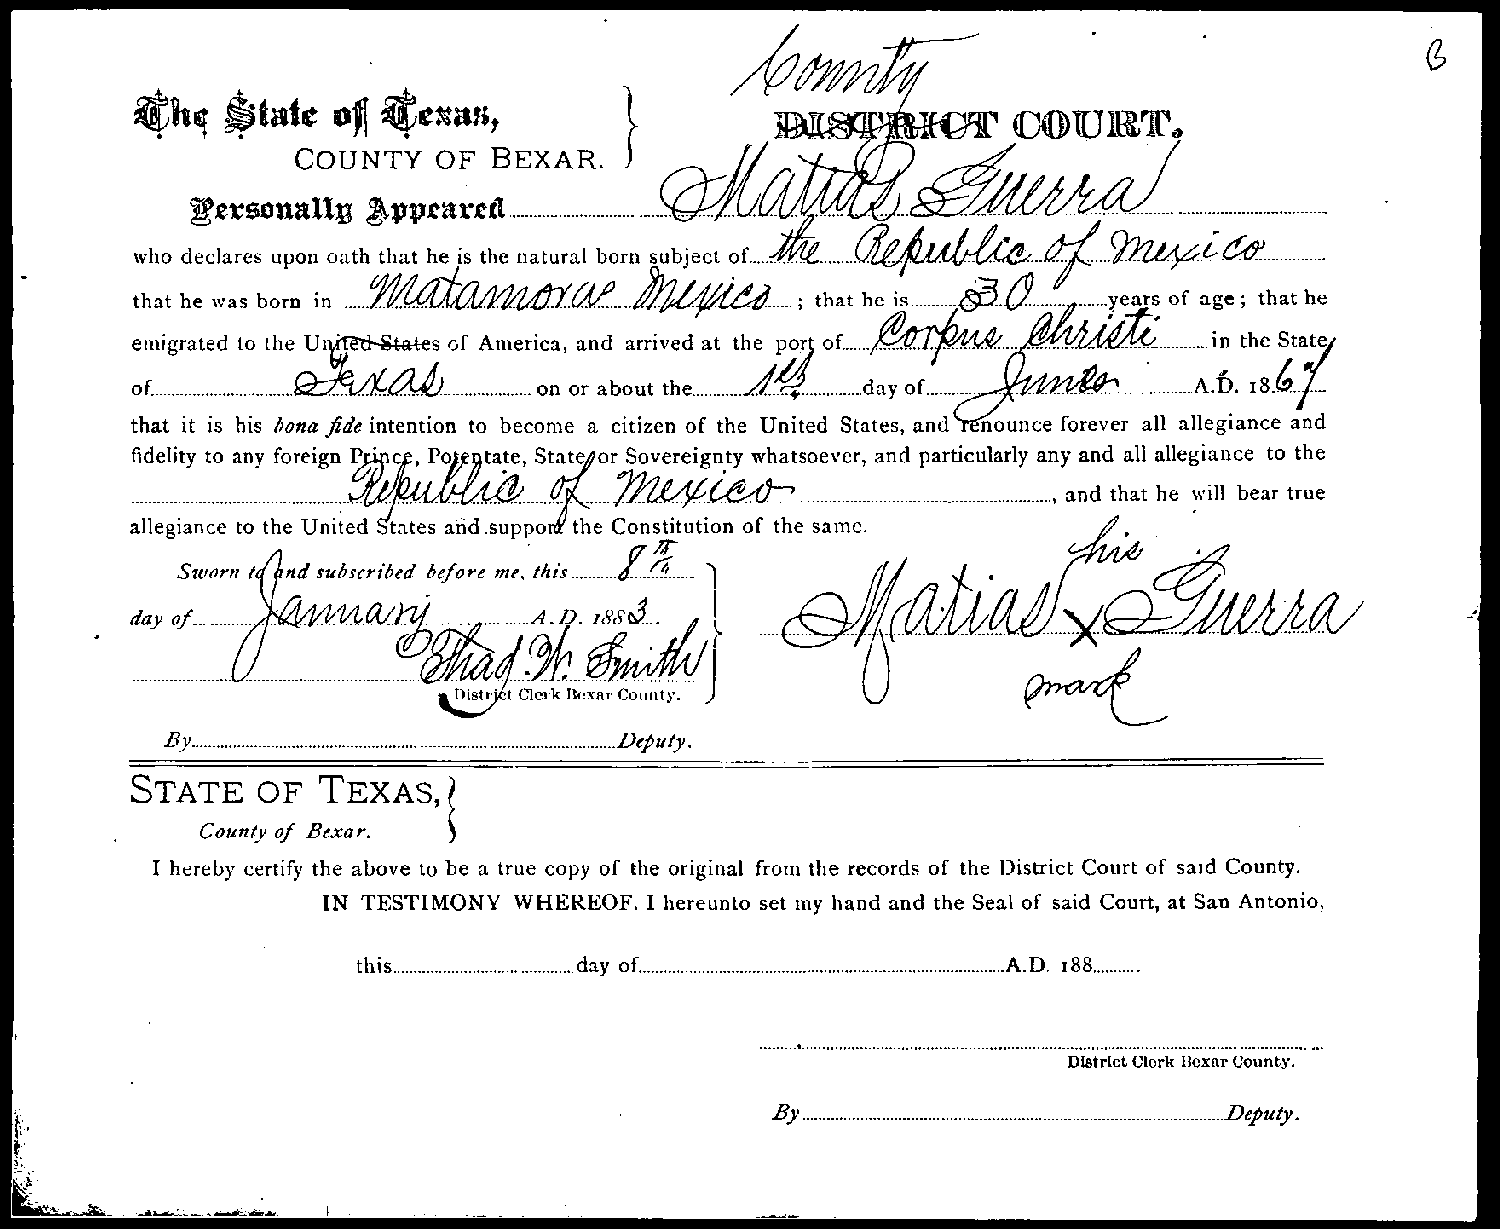 B
County
The State of Texas,
COUNTY OF BEXAR.
DISTRICT COURT.
Personally Appeared Matias Guerra
who declares upon oath that he is the natural born subject of the Republic of Mexico
that he was born in Matamoras Mexico ; that he is 30 years of age; that he
emigrated to the United States of America, and arrived at the port of Corpus Christi in the State
of Texas on or about the 1st day of June A.D. 1867
that it is his bona fide intention to become a citizen of the United States, and renounce forever all allegiance and
fidelity to any foreign Prince, Potentate, State or Sovereignty whatsoever, and particularly any and all allegiance to the
Republic of Mexico, and that he will bear true
allegiance to the United States and support the Constitution of the same.
Sworn to and subscribed before me, this 8th
day of January A.D. 1883
Thad. W. Smith
District Clerk Bexar County.
By Deputy.
his
Matias x Guerra
mark
STATE OF TEXAS,
County of Bexar.
I hereby certify the above to be a true copy of the original from the records of the District Court of said County.
IN TESTIMONY WHEREOF, I hereunto set my hand and the Seal of said Court, at San Antonio,
this day of A.D. 188
District Clerk Bexar County.
By Deputy.